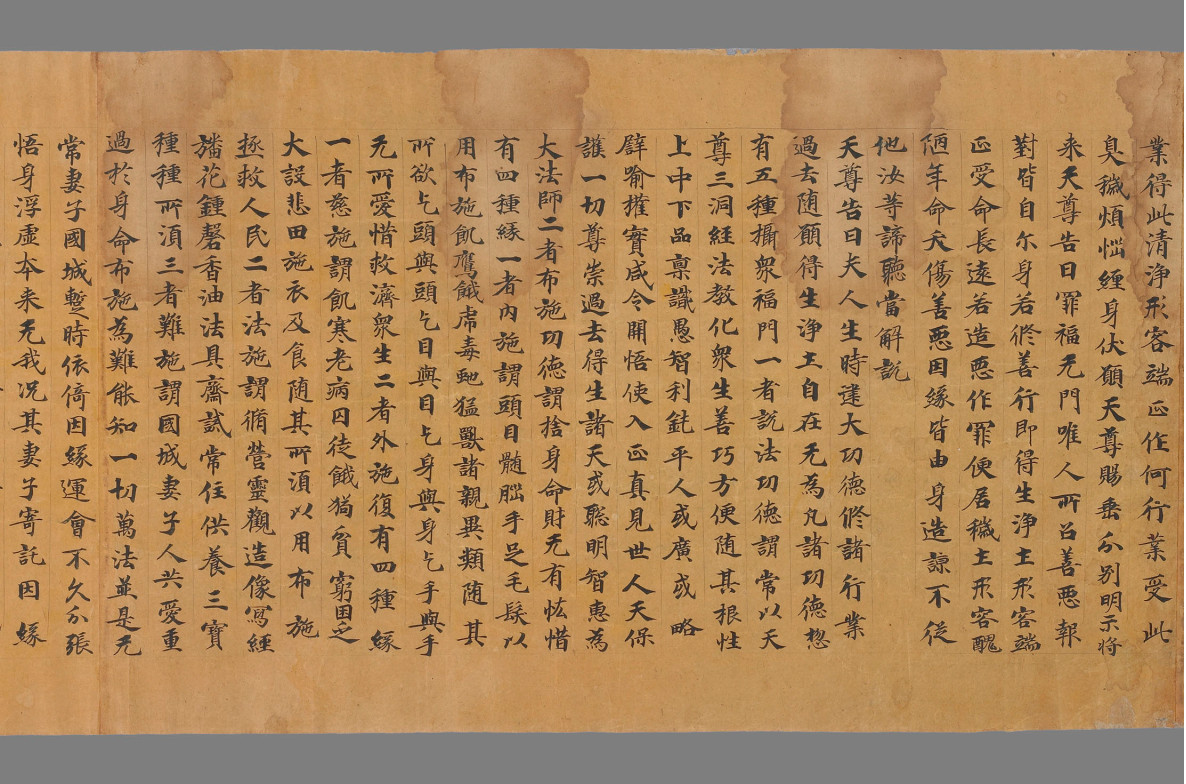 業得此清浄形容端㱏作何行業受此
臭穢煩惱纏身伏願天尊賜垂分別明示将
来天尊告曰罪福无門唯人所召善惡報
對皆自尒身若修善行即得生浄土形容端
㱏受命長遠若造惡作罪便居穢土形容醜
陋年命夭傷善惡因緣皆由身造諒不従
他汝等諦聽當解說
天尊告曰夫人生時建大功德修諸行業
過去随願得生浄土自在无為凡諸功德惣
有五種攝衆福門一者說法功德謂常以天
尊三洞經法教化衆生善巧方便随其根性
上中下品禀識愚智利鈍平人或廣或略
辟喻權實咸令開悟使入正真見世人天保
護一切尊崇過去得生諸天或聡明智惠為
大法師二者布施功德謂捨身命財无有恡惜
有四種緣一者内施謂頭目髓𦛁手足毛髮以
用布施飢鷹餓虎毒虵猛獸諸親異類随其
所欲乞頭與頭乞目與目乞身與身乞手與手
无所愛惜救濟衆生二者外施復有四種緣
一者慈施謂飢寒老病囚徒餓猶貧窮困乏
大設悲田施衣及食随其所湏以用布施
拯救人民二者法施謂循營靈觀造像寫經
旛花鍾磬香油法具齋試常住供養三寶
種種所湏三者難施謂國城妻子人共愛重
過於身命布施為難能知一切萬法並是无
常妻子國城蹔時依倚因緣運會不久分張
悟身浮虛本来无我况其妻子寄託因緣